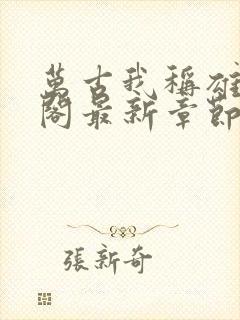 萬古我稱雄
閣最新章節
張新奇